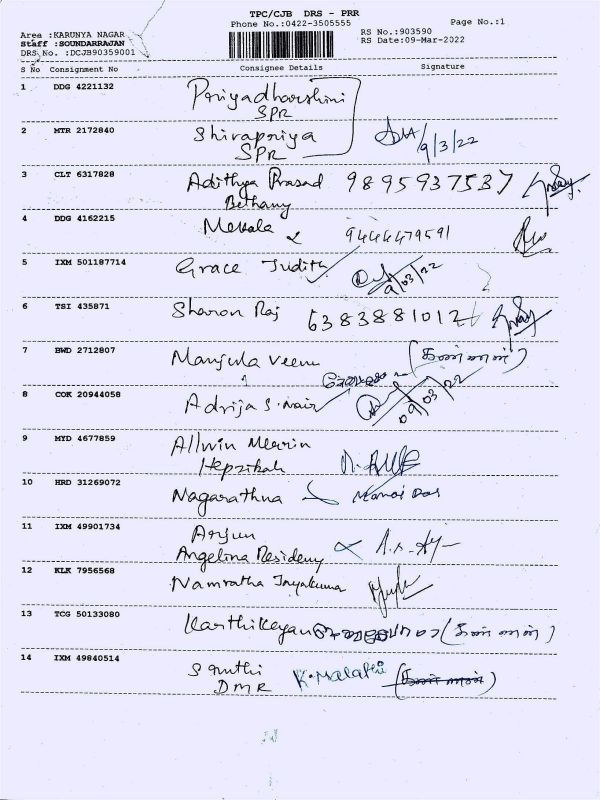 TPC/CJB DRS - PRR
Phone No.:0422-3505555
Page No.:1
Area :KARUNYA NAGAR
RS No.:903590
Staff :SOUNDARRAJAN
RS Date:09-Mar-2022
DRS No. :DCJB90359001
S No Consignment No Consignee Details Signature
1 DDG 4221132 Priyadharshini
SPR
2 MTR 2172840 Shivapriya
SPR 9/3/22
3 CLT 6317828 Adithya Prasad 9895937537
Bethany
4 DDG 4162215 Mekala 9444479591
5 IXM 501187714 Grace Judith 9/03/22
6 TSI 435871 Sharon Raj 6383881012
7 BWD 2712807 Manjula Veenu
8 COK 20944058 Adrija S. Nair 09/03/22
9 MYD 4677859 Allwin Merrin
Hepzibah
10 HRD 31269072 Nagarathna Manoj Das
11 IXM 49901734 Arjun
Angelina Resideny
12 KLK 7956568 Namratha Jayakuma
13 TCG 50133080 Karthikeyan
14 IXM 49840514 Sruthi K. Malathi
DMR